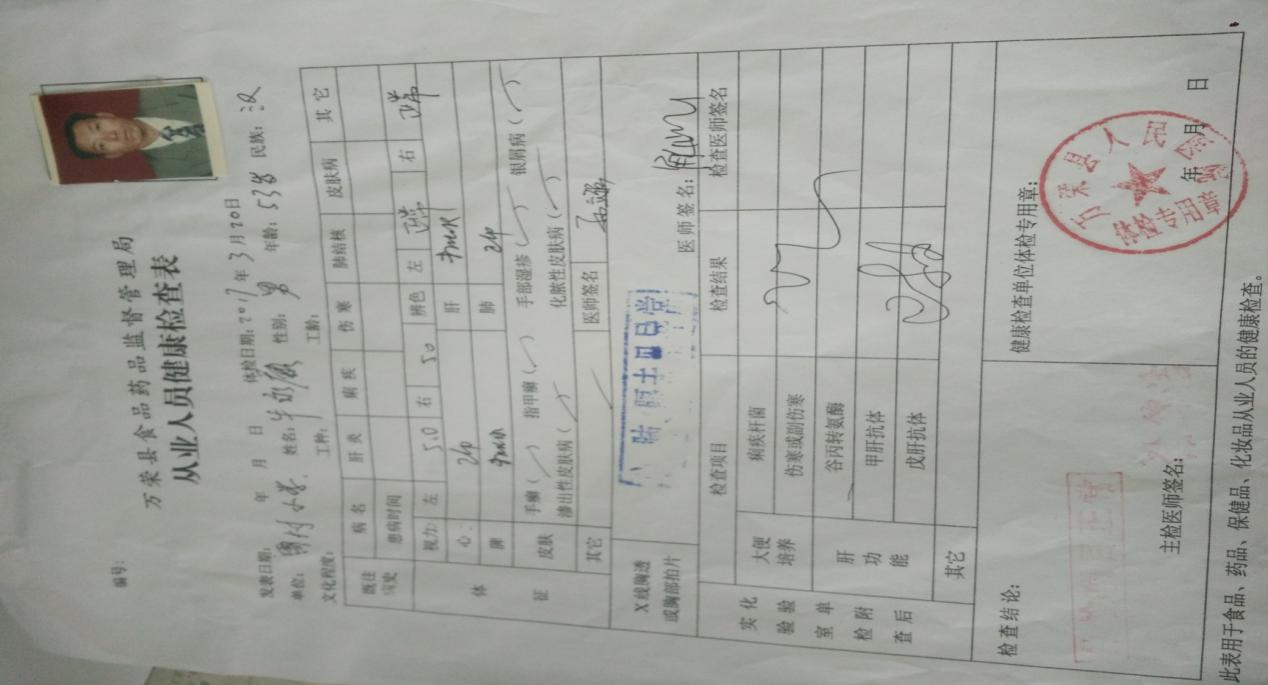 编号：
万荣县食品药品监督管理局
从业人员健康检查表
发表日期： 年 月 日 体检日期：2017年3月20日
单位： 姓名： 性别：男 年龄：53岁 民族：汉
文化程度： 工种： 工龄：
既往病史 病名 肝炎 痢疾 伤寒 肺结核 皮肤病 其它
患病时间
体征 视力： 左 5.0 右 5.0 辨色 左 正常 右 正常
心： 肝
脾 肺
皮肤 手癣（ ） 指甲癣（ ） 手部湿疹（ ） 银屑病（ ）
渗出性皮肤病（ ） 化脓性皮肤病（ ）
其它 医师签名
X线胸透或胸部拍片 医师签名：
实验室检查 化验单附后 检查项目 检查结果 检查医师签名
大便培养 痢疾杆菌
伤寒或副伤寒
肝功能 谷丙转氨酶
甲肝抗体
戊肝抗体
其它
检查结论： 健康检查单位体检专用章：
万荣县人民
主检医师签名： 年 月 日
此表用于食品、药品、保健品、化妆品从业人员的健康检查。